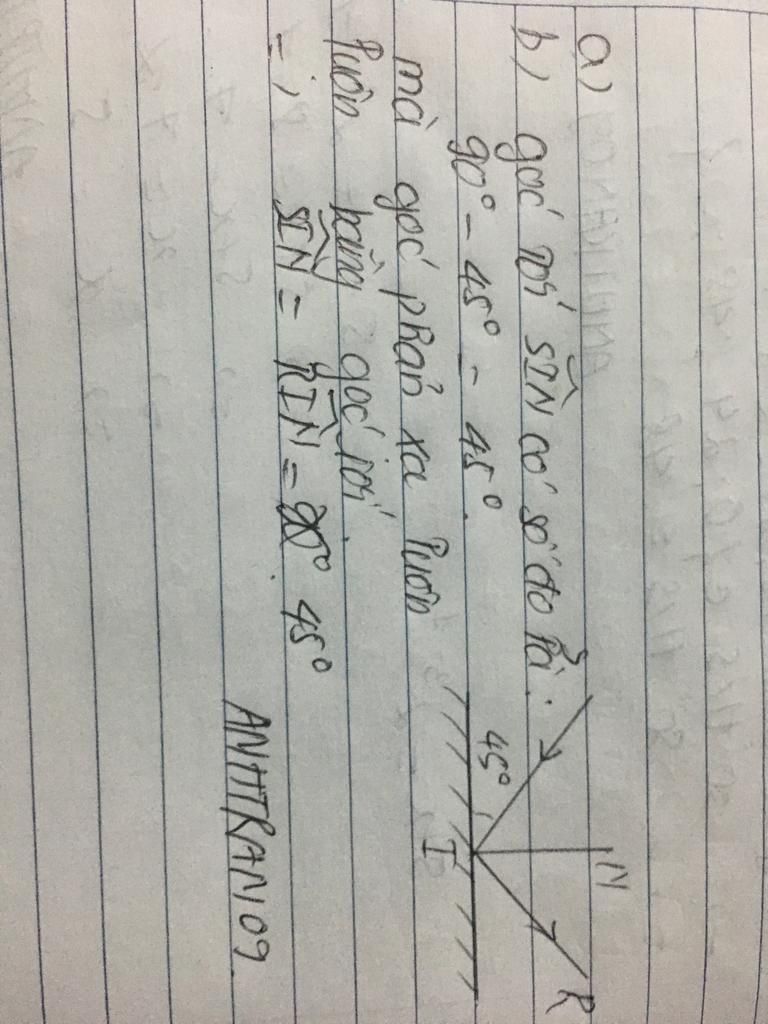 a)
b) góc tới SIN có số đo là:
90° - 45° = 45°.
mà góc phản xạ luôn
luôn bằng góc tới.
=) SIN = RIN = 45°
S
45°
N
I
R
ANHTRAN09